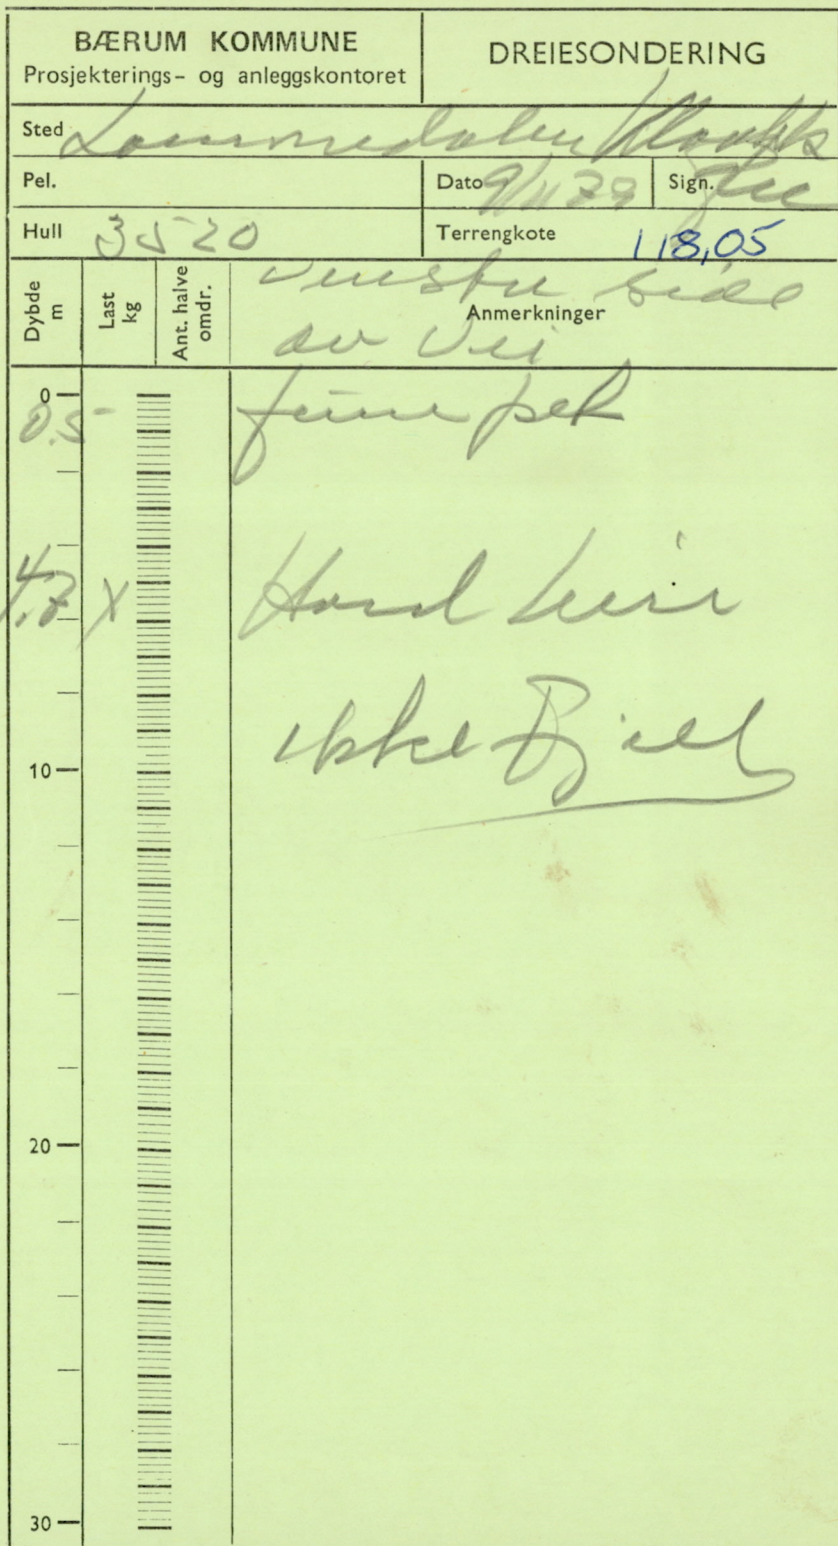 BÆRUM KOMMUNE
Prosjekterings- og anleggskontoret
DREIESONDERING
Sted Lommedalen Kloakk
Pel.
Dato 9/11 79 Sign.
Hull 3520
Terrengkote 118,05
Dybde m
Last kg
Ant. halve omdr.
Anmerkninger
Venstre side
av Vei
0
0.5
4.7 X Hard Leire
ikke Fjell
10
20
30